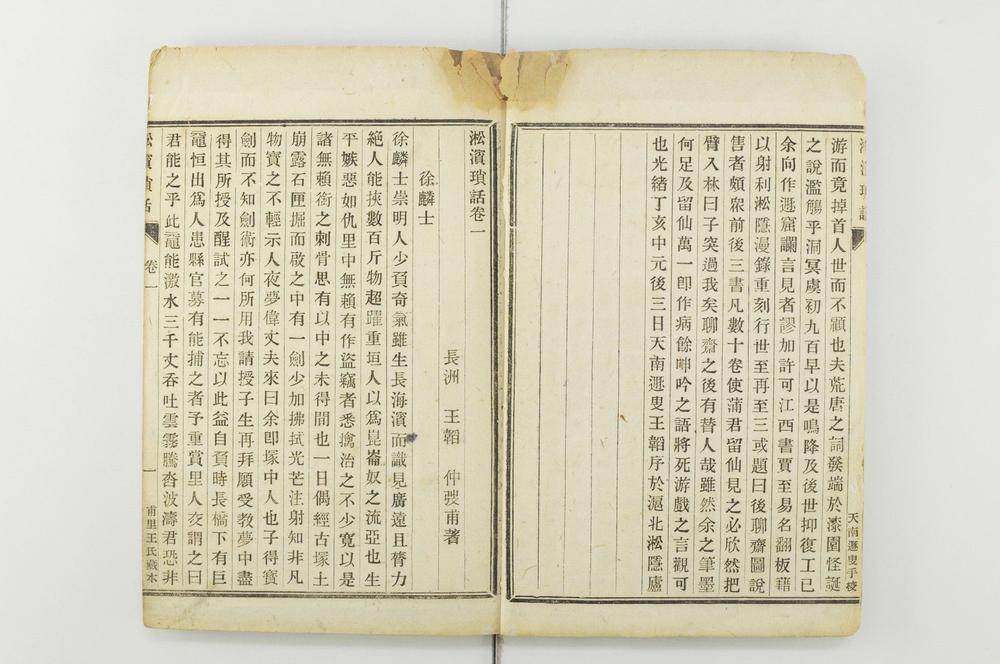 天南遯叟手校
游而竟掉首人世而不顧也夫荒唐之詞發端於漆園怪誕
之說濫觴乎洞冥虞初九百早以是鳴降及後世抑復工已
余向作遯窟讕言見者謬加許可江西書賈至易名翻板藉
以射利淞隱漫錄重刻行世至再至三或題曰後聊齋圖說
售者頗衆前後三書凡數十卷使蒲君留仙見之必欣然把
臂入林曰子突過我矣聊齋之後有替人哉雖然余之筆墨
何足及留仙萬一卽作病餘呻吟之語將死游戲之言觀可
也光緒丁亥中元後三日天南遯叟王韜序於滬北淞隱廬
淞濱瑣話卷一
長洲 王韜 仲弢甫著
徐麟士
徐麟士崇明人少負奇氣雖生長海濱而識見廣遠且膂力
絕人能挾數百斤物超躍重垣人以爲崑崙奴之流亞也生
平嫉惡如仇里中無賴有作盜竊者悉擒治之不少寬以是
諸無賴銜之刺骨思有以中之未得間也一日偶經古塚土
崩露石匣掘而啟之中有一劍少加拂拭光芒注射知非凡
物寶之不輕示人夜夢偉丈夫來曰余卽塚中人也子得寶
劍而不知劍術亦何所用我請授子生再拜願受教夢中盡
得其所授及醒試之一一不忘以此益自負時長橋下有巨
黿恒出爲人患縣官募有能捕之者予重賞里人交謂之曰
君能之乎此黿能激水三千丈吞吐雲霧騰沓波濤君恐非
淞濱瑣話 卷一 一 甫里王氏藏本